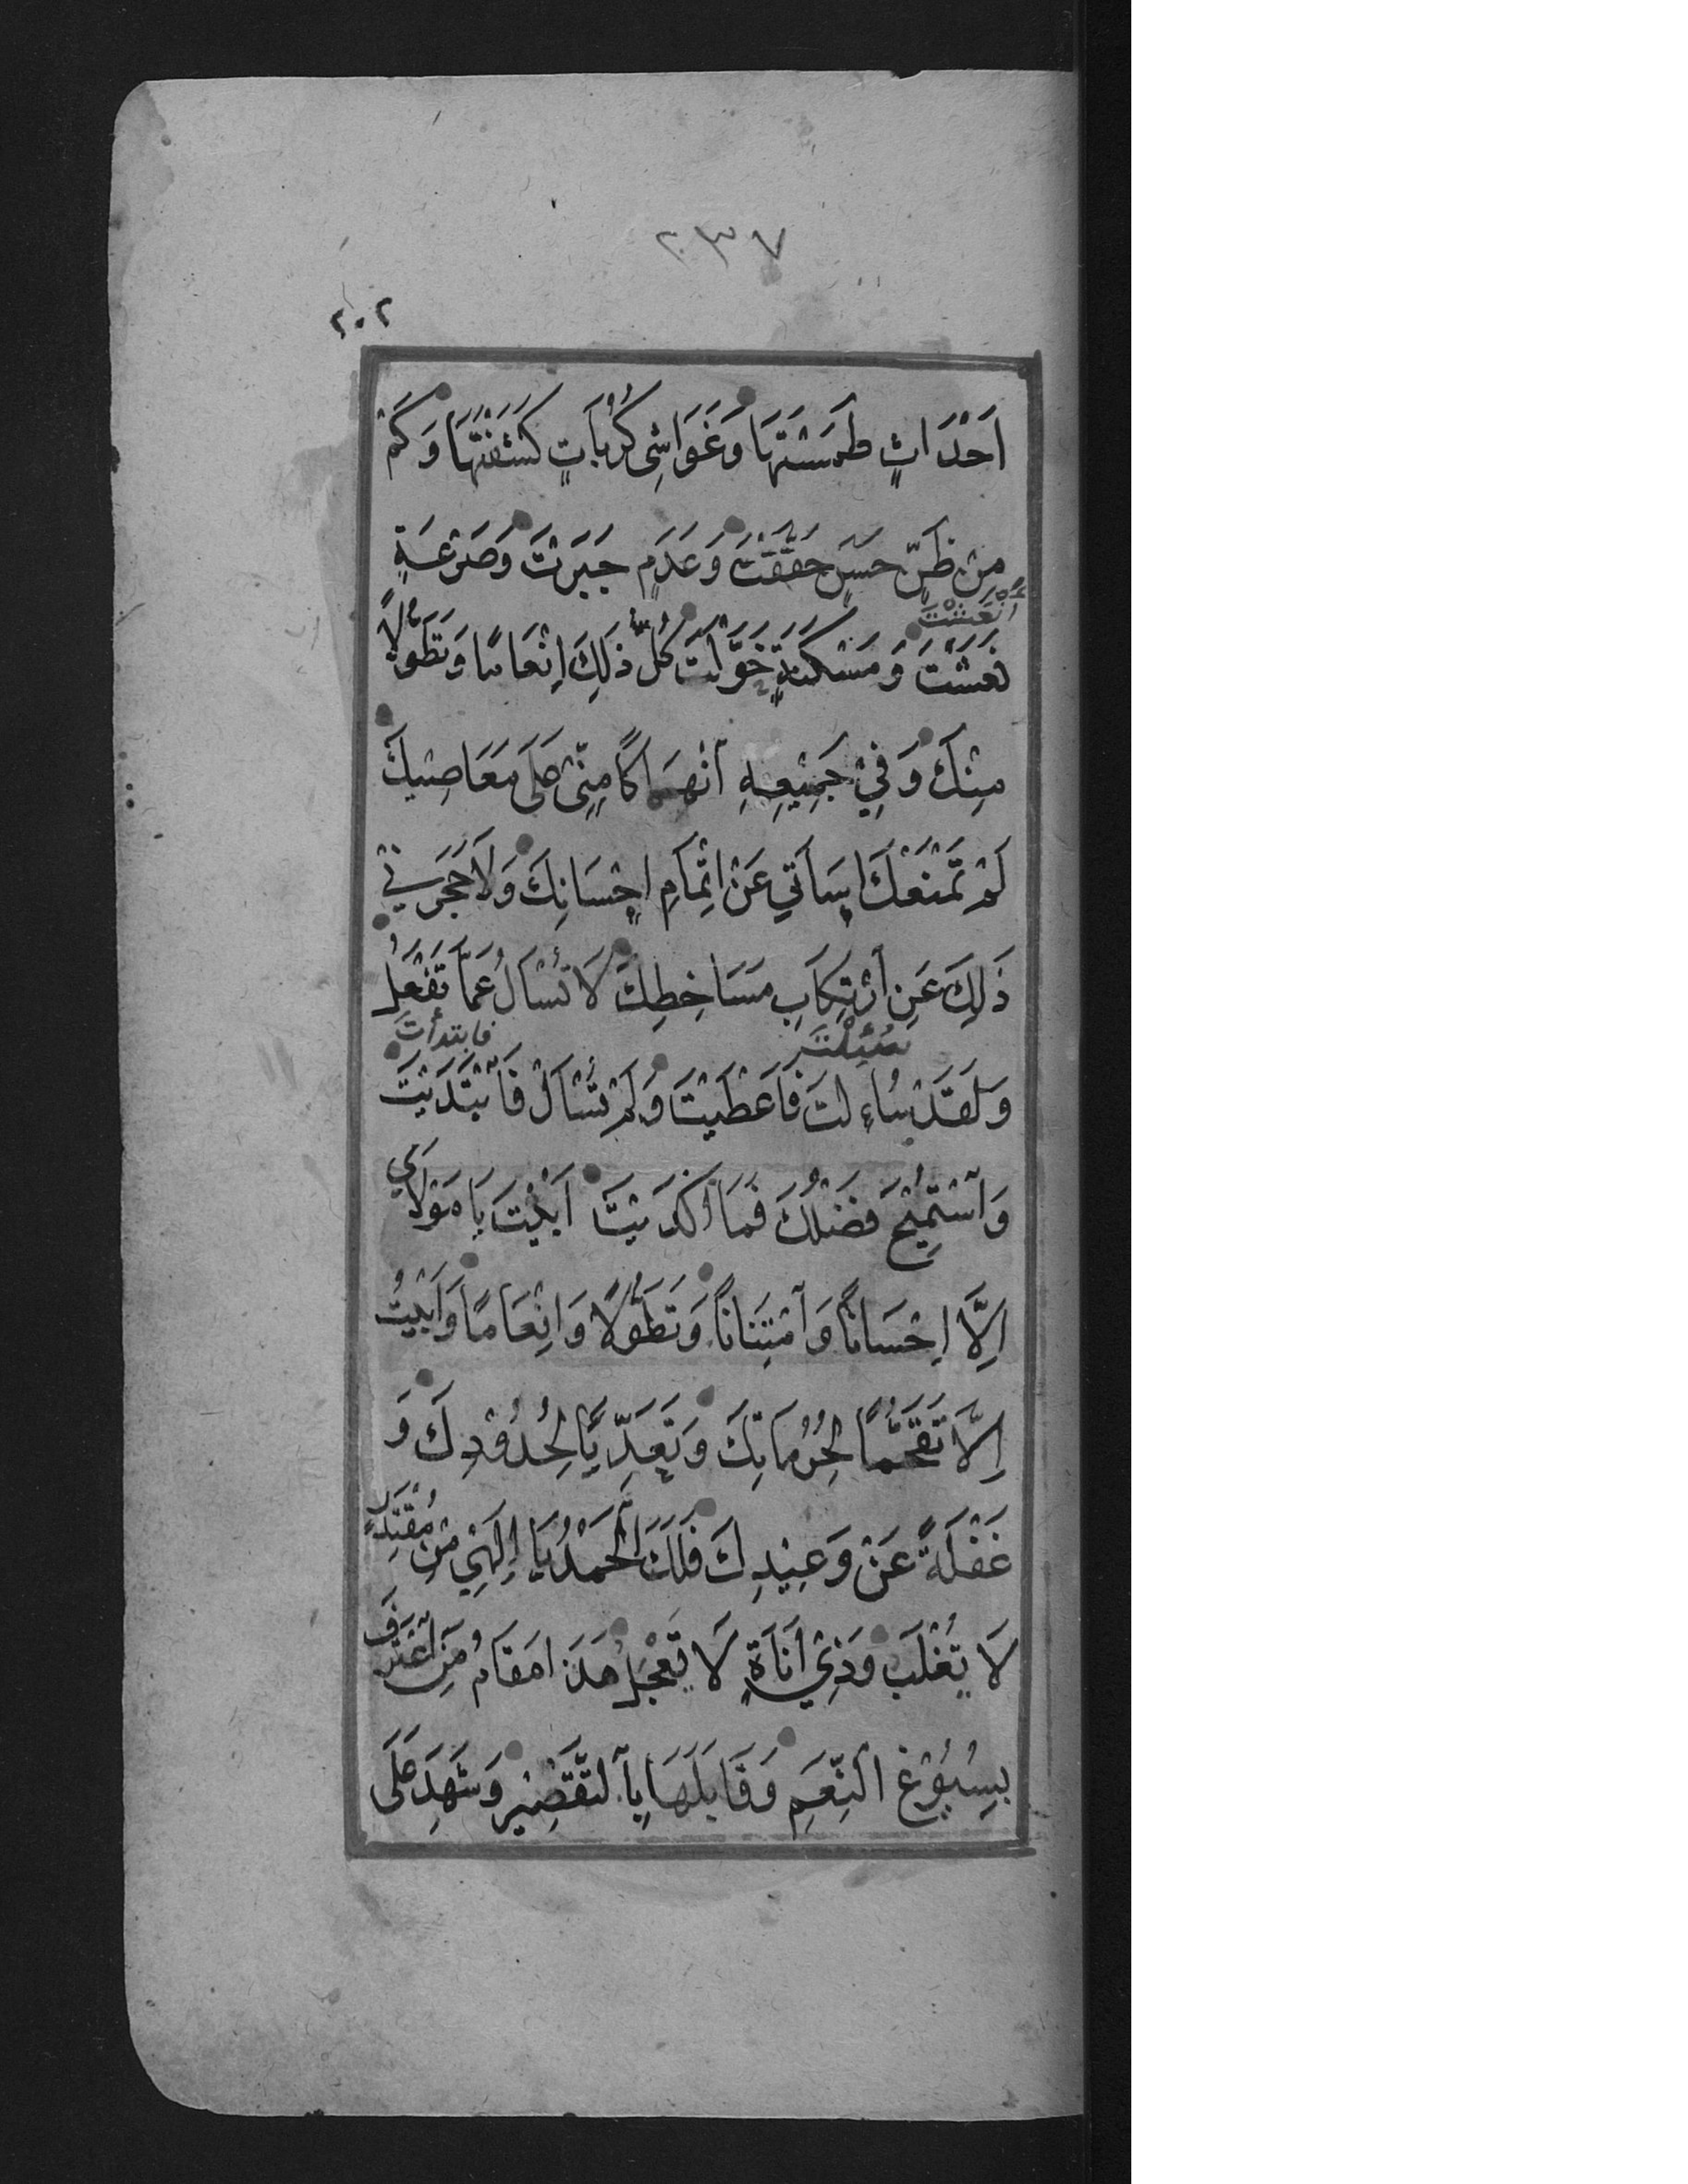 ٢٣٧
٢٠٢
اَحْدَاثٍ طَمَسْتَهَا وَغَوَاشِیَ كُرُبَاتٍ كَشَفْتَهَا وَكَمْ
مِنْ ظَنٍّ حَسَنٍ حَقَّقْتَ وَعَدَمٍ جَبَرْتَ وَصَرْعَةٍ
أَنْعَشْتَ
نَعَشْتَ وَمَسْكَنَةٍ خَوَّلْتَ كُلُّ ذٰلِكَ اِنْعَامًا وَتَطَوُّلًا
مِنْكَ وَفِيْ جَمِيْعِهِ اَنْهِمَاكًا مِنِّیْ عَلَی مَعَاصِيْكَ
لَمْ تَمْنَعْكَ اِسَآءَتِي عَنْ اِتْمَامِ اِحْسَانِكَ وَلَا حَجَرَنِيْ
ذٰلِكَ عَنِ اَرْتِكَابِ مَسَاخِطِكَ لَا تُسْأَلُ عَمَّا تَفْعَلُ
سُئِلْتَ
فابتدأت
وَلَقَدْ سُاءِلْتَ فَاَعْطَيْتَ وَلَمْ تُسْأَلْ فَاَبْتَدَيْتَ
وَاَسْتُمِيْحَ فَضْلُكَ فَمَا اَكْدَيْتَ اَبَيْتَ يَا مَوْلَايَ
اِلَّا اِحْسَانًا وَاَمْتِنَانًا وَتَطَوُّلًا وَاِنْعَامًا وَاَبَيْتُ
اِلَّا تَقَحُّمًا لِحُرُمَاتِكَ وَتَعَدِّيًا لِحُدُوْدِكَ وَ
غَفْلَةً عَنْ وَعِيْدِكَ فَلَكَ اَلْحَمْدُ يَا اِلٰهِيْ مِنْ مُقْتَدِرٍ
لَا يُغْلَبُ وَذِيْ اَنَاةٍ لَا يَعْجَلُ هَذَا مَقَامُ مَنِ اَعْتَرَفَ
بِسُبُوْغِ النِّعَمِ وَقَابَلَهَا بِاَلتَّقْصِيْرِ وَشَهِدَ عَلَی